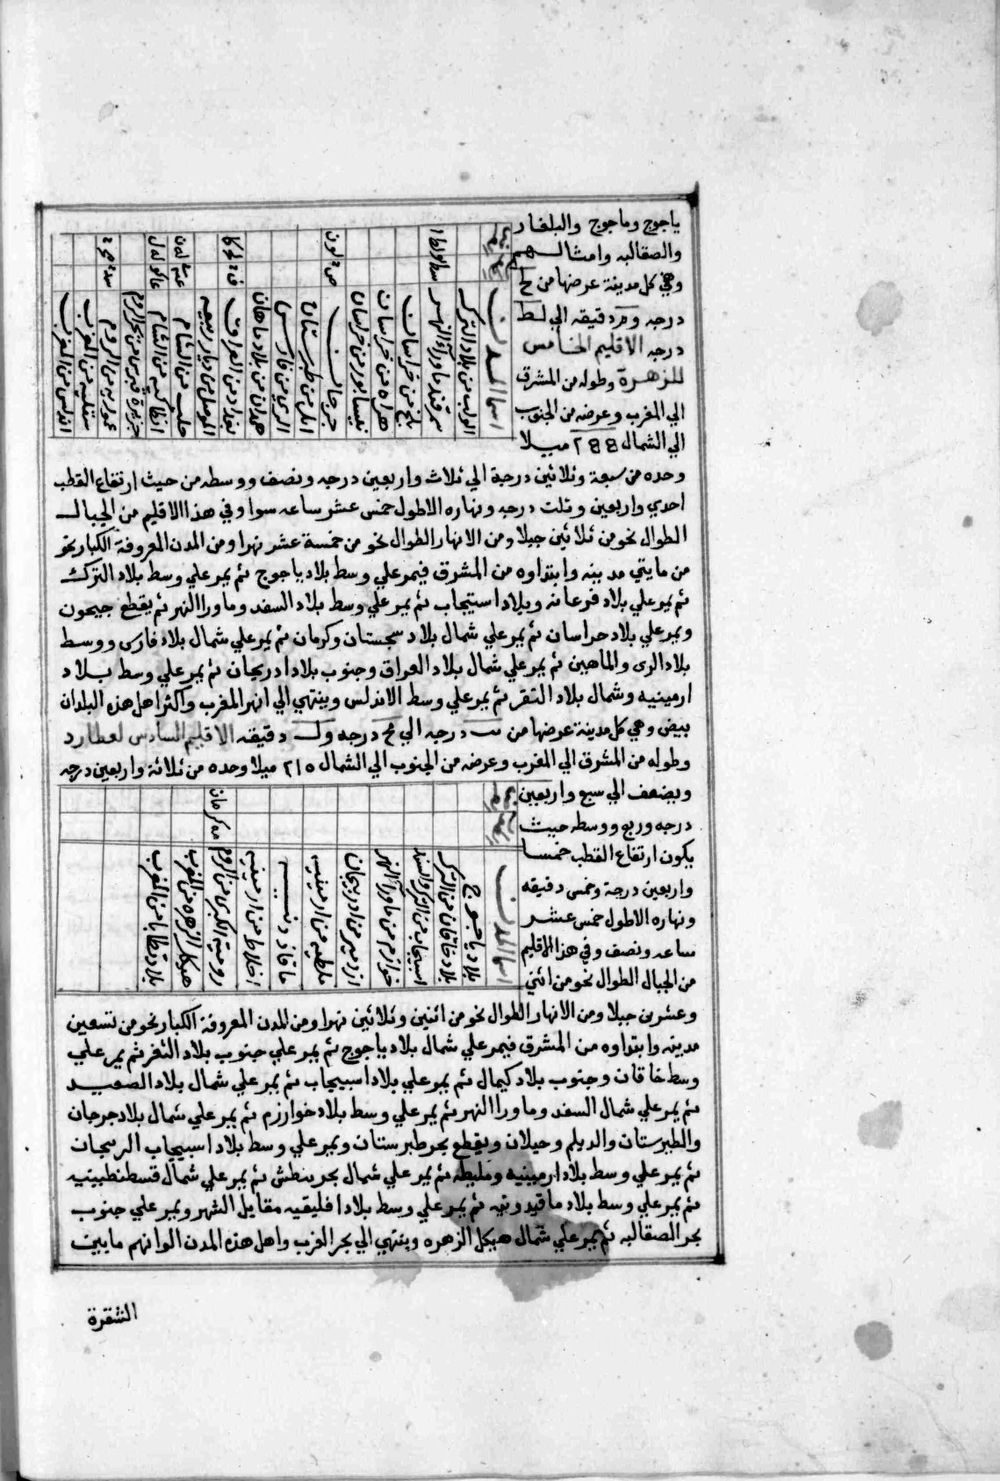 ياجوج وماجوج والبلغار
والصقالبه وامثالهم
وهي كل مدينة عرضها من
درجه ودقيقه الي لط
درجه الاقليم الخامس
للزهرة وطوله من المشرق
الي المغرب وعرضه من الجنوب
الي الشمال ٢٨٨ ميلا
اسما المدن
من بلاد الترك
سمرقند ماورآء النهر
بلخ من خراسان
هراه من خراسان
نيسابور من خراسان
جرجان
امل من طبرستان
الري من فارس
همدان من بلاد ماهان
بغداد من العراق
الموصل من ديار ربيعه
حلب من الشام
انطاكيه من الشام
جزيرة قبرس من بحر الروم
عموريه من الروم
سقليه من المغرب
اندلس من المغرب
وحده من سبعة وثلاثين درجة الي ثلاث واربعين درجه ونصف ووسطه من حيث ارتفاع القطب
احدي واربعين وثلت درجه ونهاره الاطول خمس عشر ساعه سوا وفي هذا الاقليم من الجبال
الطوال نحو من ثلاثين جبلا ومن الانهار الطوال نحو من خمسة عشر نهرا ومن المدن المعروفة الكبار نحو
من مايتي مدينه وابتداوه من المشرق فيمر علي وسط بلاد ياجوج ثم يمر علي وسط بلاد الترك
ثم يمر علي بلاد فرعانه وبلاد استيجاب ثم يمر علي وسط بلاد السغد وماورا النهر ثم يقطع جيحون
ويمر علي بلاد حراسان ثم يمر علي شمال بلاد سجستان وكرمان ثم يمر علي شمال بلاد فارس ووسط
بلاد الري والماهين ثم يمر علي شمال بلاد العراق وجنوب بلاد ادربجان ثم يمر علي وسط بلاد
ارمينيه وشمال بلاد التغر ثم يمر علي وسط الاندلس وينتهي الي انهر المغرب واكثر اهل هذه البلدان
بيض وهي كل مدينة عرضها من درجه الي مح درجه ول دقيقه الاقليم السادس لعطارد
وطوله من المشرق الي المغرب وعرضه من الجنوب الي الشمال ٢١٥ ميلا وحده من ثلاثة واربعين درجه
وبضعف الي سبع واربعين
درجه وربع ووسطه حيث
يكون ارتفاع القطب خمسا
واربعين درجة وخمس دقيقه
ونهاره الاطول خمس عشر
ساعه ونصف وفي هذا الاقليم
من الجبال الطوال نحو من اثني
اسما المدن
بلاد ياجوج
بلاد خاقان من الترك
اسبيجاب من الترك والسند
خوارزم من ماورآ النهر
ازدمير من ادربيجان
ملطيه من ارمينيه
ماقاذونيسيه
اخلاط من ارمينيه
روميه الكبري من الروم
هيكل الزهره من المغرب
بلاد قطابا من المغرب
وعشرين جبلا ومن الانهار الطوال نحو من اثنين وثلاثين نهرا ومن المدن المعروفة الكبار نحو من تسعين
مدينه وابتداوه من المشرق فيمر علي شمال بلاد ياجوج ثم يمر علي جنوب بلاد التغرغر ثم يمر علي
وسط خاقان وجنوب بلاد كيمال ثم يمر علي بلاد اسبيجاب ثم يمر علي شمال بلاد الصعيد
ثم يمر علي شمال السغد وماورا النهر ثم يمر علي وسط بلاد خوارزم ثم يمر علي شمال بلاد جرجان
والطبرستان والديلم وجيلان ويقطع بحر طبرستان ويمر علي وسط بلاد اسبيجاب
ثم يمر علي وسط بلاد ارمينيه وملطيه ثم يمر علي شمال بحر بنطش ثم يمر علي شمال قسطنطينيه
ثم يمر علي وسط بلاد ماقيدونيه ثم يمر علي وسط بلاد افليقيه مقابل الشهر ويمر علي جنوب
بحر الصقالبه ثم يمر علي شمال هيكل الزهره وينتهي الي بحر الغرب واهل هذه المدن الوانهم مابين
الشقرة